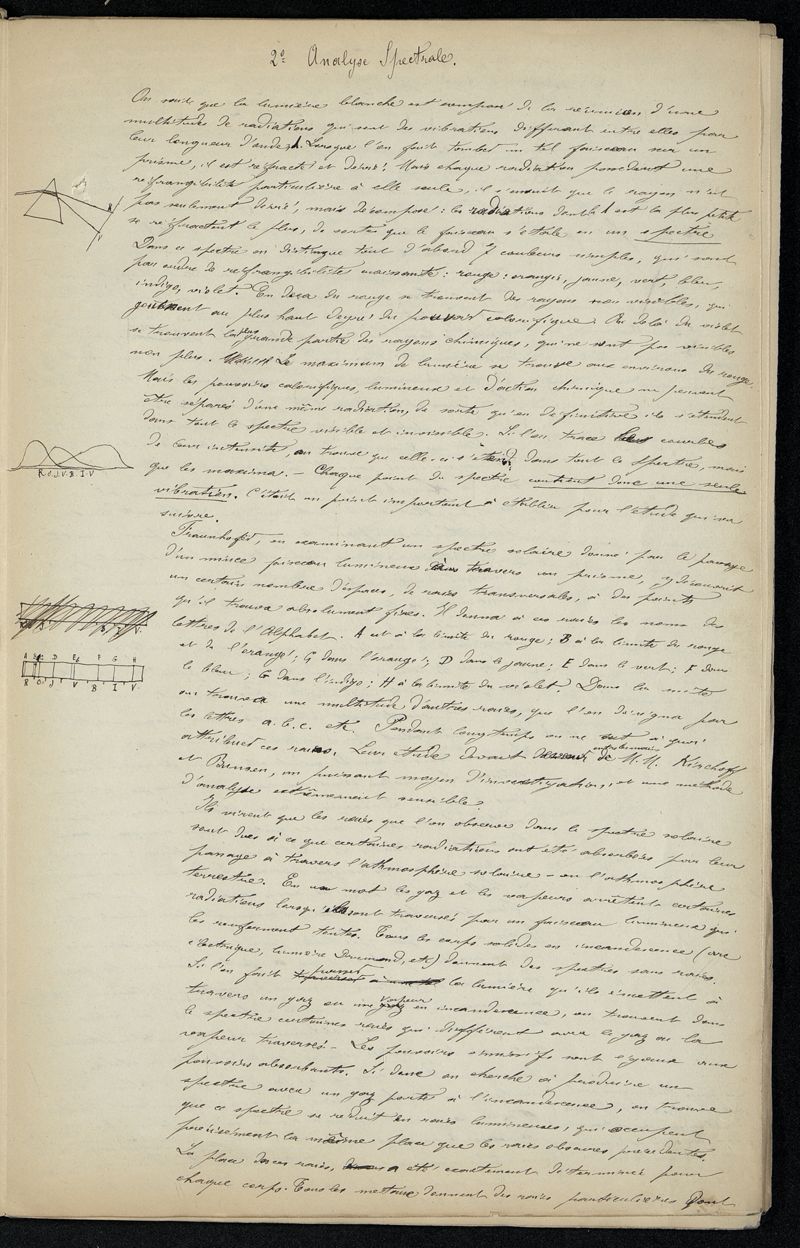 2° Analyse Spectrale.
On sait que la lumière blanche est composé de la réunion d'une
multitudes de radiations qui sont des vibrations différant entre elles par
leur longueur d'ondes λ. Lorsque l'on fait tomber un tel faisceau sur un
prisme, il est réfracté et dévié. Mais chaque radiation possédant une
réfrangibilité particulière à elle seule, il s'ensuit que le rayon n'est
pas seulement dévié, mais décomposé : les radiations dont le λ est la plus petite
se réfractent le plus, de sorte que le faisceau s'étale en un spectre
Dans ce spectre on distingue tout d'abord 7 couleurs simples, qui sont
par ordre de réfrangibilité croissante : rouge, orangé, jaune, vert, bleu,
indigo, violet. En deça du rouge se trouvent des rayons non visibles, qui
jouissent au plus haut degré du pouvoir calorifique. Au delà du violet
se trouvent la plus grande partie des rayons chimiques, qui ne sont pas visibles
non plus. Le maximum de lumière se trouve aux environs du rouge.
Mais les pouvoirs calorifiques, lumineux et d'action chimique ne peuvent
être séparés d'une même radiation, de sorte qu'en définitive ils s'étendent
dans tout le spectre visible et invisible. Si l'on trace les courbes
de leur intensité, on trouve que celle-ci s'étend dans tout le spectre, mais
R.O.J.V.B.I.V
que les maxima. - Chaque point du spectre contient donc une seule
vibration. C'était un point important à établir pour l'étude qui va
suivre.
Fraunhofer, en examinant un spectre solaire donné par le passage
d'un mince pinceau lumineux à travers un prisme, y découvrit
un certain nombre d'espaces, de raies transversales, à des points
qu'il trouva absolument fixes. Il donna à ces raies les noms des
lettres de l'Alphabet. A est à la limite du rouge ; B à la limite du rouge
et de l'orangé ; C dans l'orangé ; D dans le jaune ; E dans le vert ; F dans
A B C D E F G H
R O J V B I V
le bleu ; G dans l'indigo ; H à la limite du violet. Dans la suite
on trouva une multitude d'autres raies, que l'on désigna par
les lettres a.b.c. etc. Pendant longtemps on ne sut à quoi
attribuer ces raies. Leur étude devint entre les mains de M.M. Kirchoff
et Bunsen, un puissant moyen d'investigation, et une méthode
d'analyse extrêmement sensible.
Ils virent que les raies que l'on observe dans le spectre solaire
sont dues à ce que certaines radiations ont été absorbées par leur
passage à travers l'athmosphère solaire - ou l'athmosphère
terrestre. En un mot les gaz et les vapeurs arrêtent certaines
radiations lorsqu'ils sont traversés par un faisceau lumineux qui
les renferment toutes. Tous les corps solides en incandescence (arc
électrique, lumière Drummond, etc) donnent des spectres sans raies.
Si l'on fait passer la lumière qu'ils émettent à
travers un gaz ou une vapeur en incandescence, on trouvent dans
le spectre certaines raies qui diffèrent avec le gaz ou la
vapeur traversés - Les pouvoirs émissifs sont égaux aux
pouvoirs absorbants. Si donc on cherche à produire un
spectre avec un gaz porté à l'incandescence, on trouve
que ce spectre se réduit en raies lumineuses, qui occupent
précisément la même place que les raies obscures précédentes.
La place de ces raies, a été exactement déterminée pour
chaque corps. Tous les métaux donnent des raies particulières dont